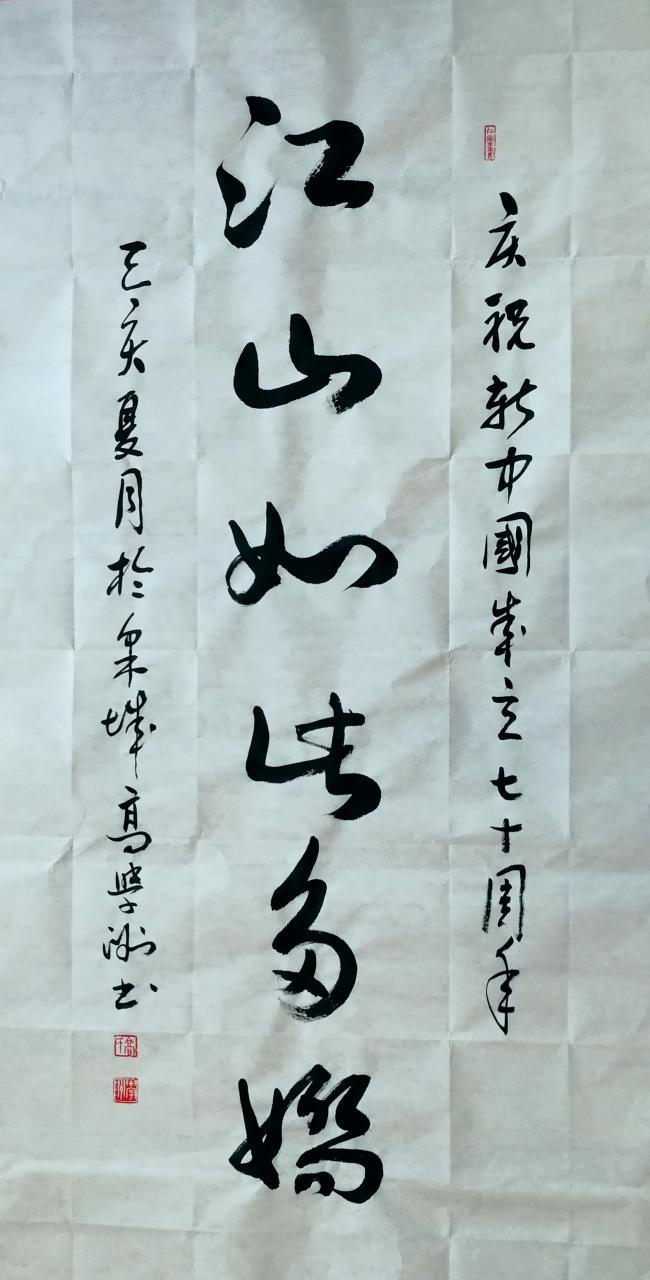 庆祝新中國成立七十周年
江山如此多嬌
己亥夏月於泉城高學洲书